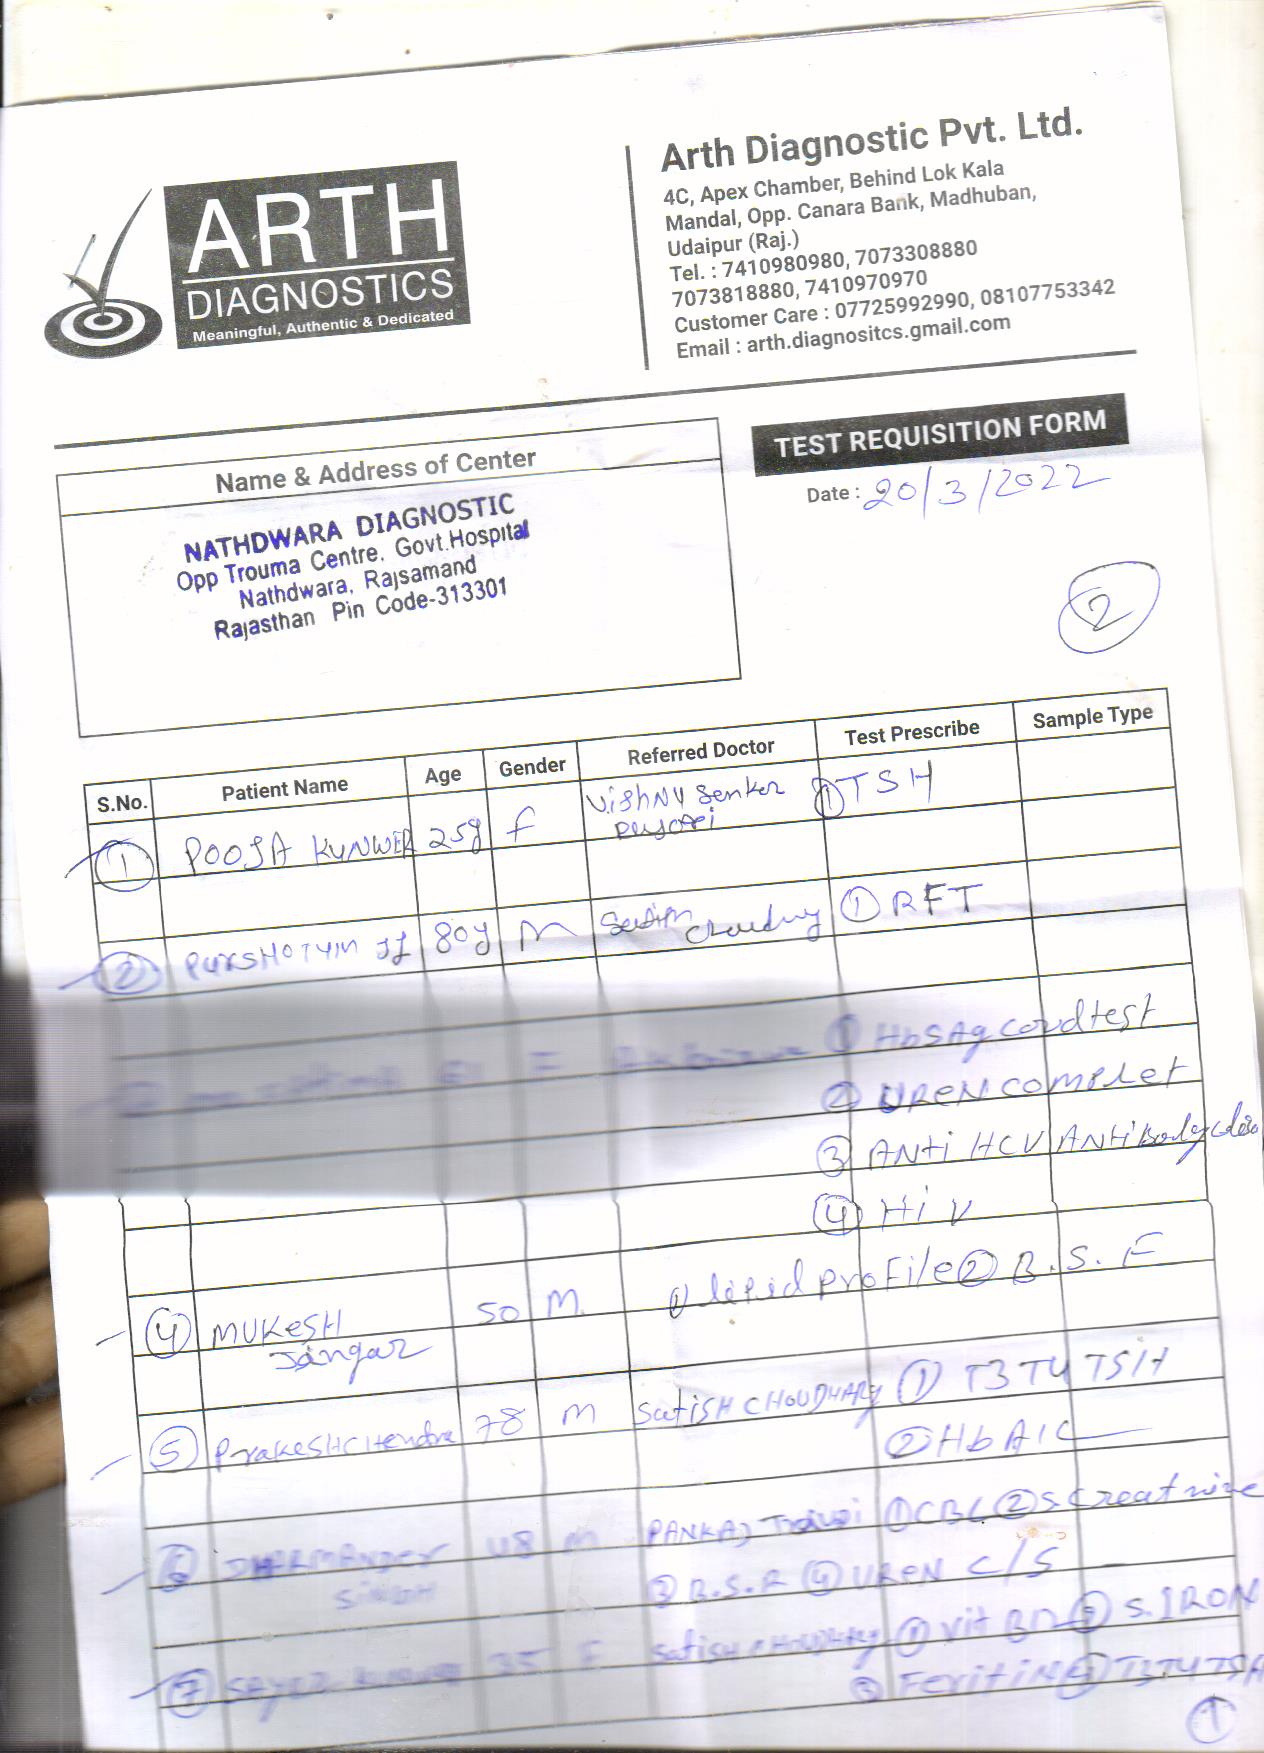 ARTH
DIAGNOSTICS
Meaningful, Authentic & Dedicated
Arth Diagnostic Pvt. Ltd.
4C, Apex Chamber, Behind Lok Kala
Mandal, Opp. Canara Bank, Madhuban,
Udaipur (Raj.)
Tel. : 7410980980, 7073308880
7073818880, 7410970970
Customer Care : 07725992990, 08107753342
Email : arth.diagnositcs.gmail.com
TEST REQUISITION FORM
Date : 20/3/2022
Name & Address of Center
NATHDWARA DIAGNOSTIC
Opp Trouma Centre. Govt.Hospital
Nathdwara, Rajsamand
Rajasthan Pin Code-313301
2
S.No. Patient Name Age Gender Referred Doctor Test Prescribe Sample Type
1 POOJA KUNWER 25y F Vishnu Senker 1 TSH
2 PURSHOTUM JI 80y M Choudhry 1 RFT
F 1 HbSAg cardtest
2 UREN COMPLET
3 ANTi HCV ANTiBody
4 HiV
4 MUKESH 50 M. 1 lipid PROFILE 2 B.S.F
Jangar
5 Prakesh 78 M SatiSH CHOUDHARY 1 T3 T4 TSH
2 HbA1C
6 DHARMANDER 48 M PANKAJ 1 CBC 2 S.Creatnine
SINGH 3 B.S.R 4 UREN C/S
7 35 F Satish 1 Vit B12 2 S.IRON
3 Feritine 4 T3T4TSH
1